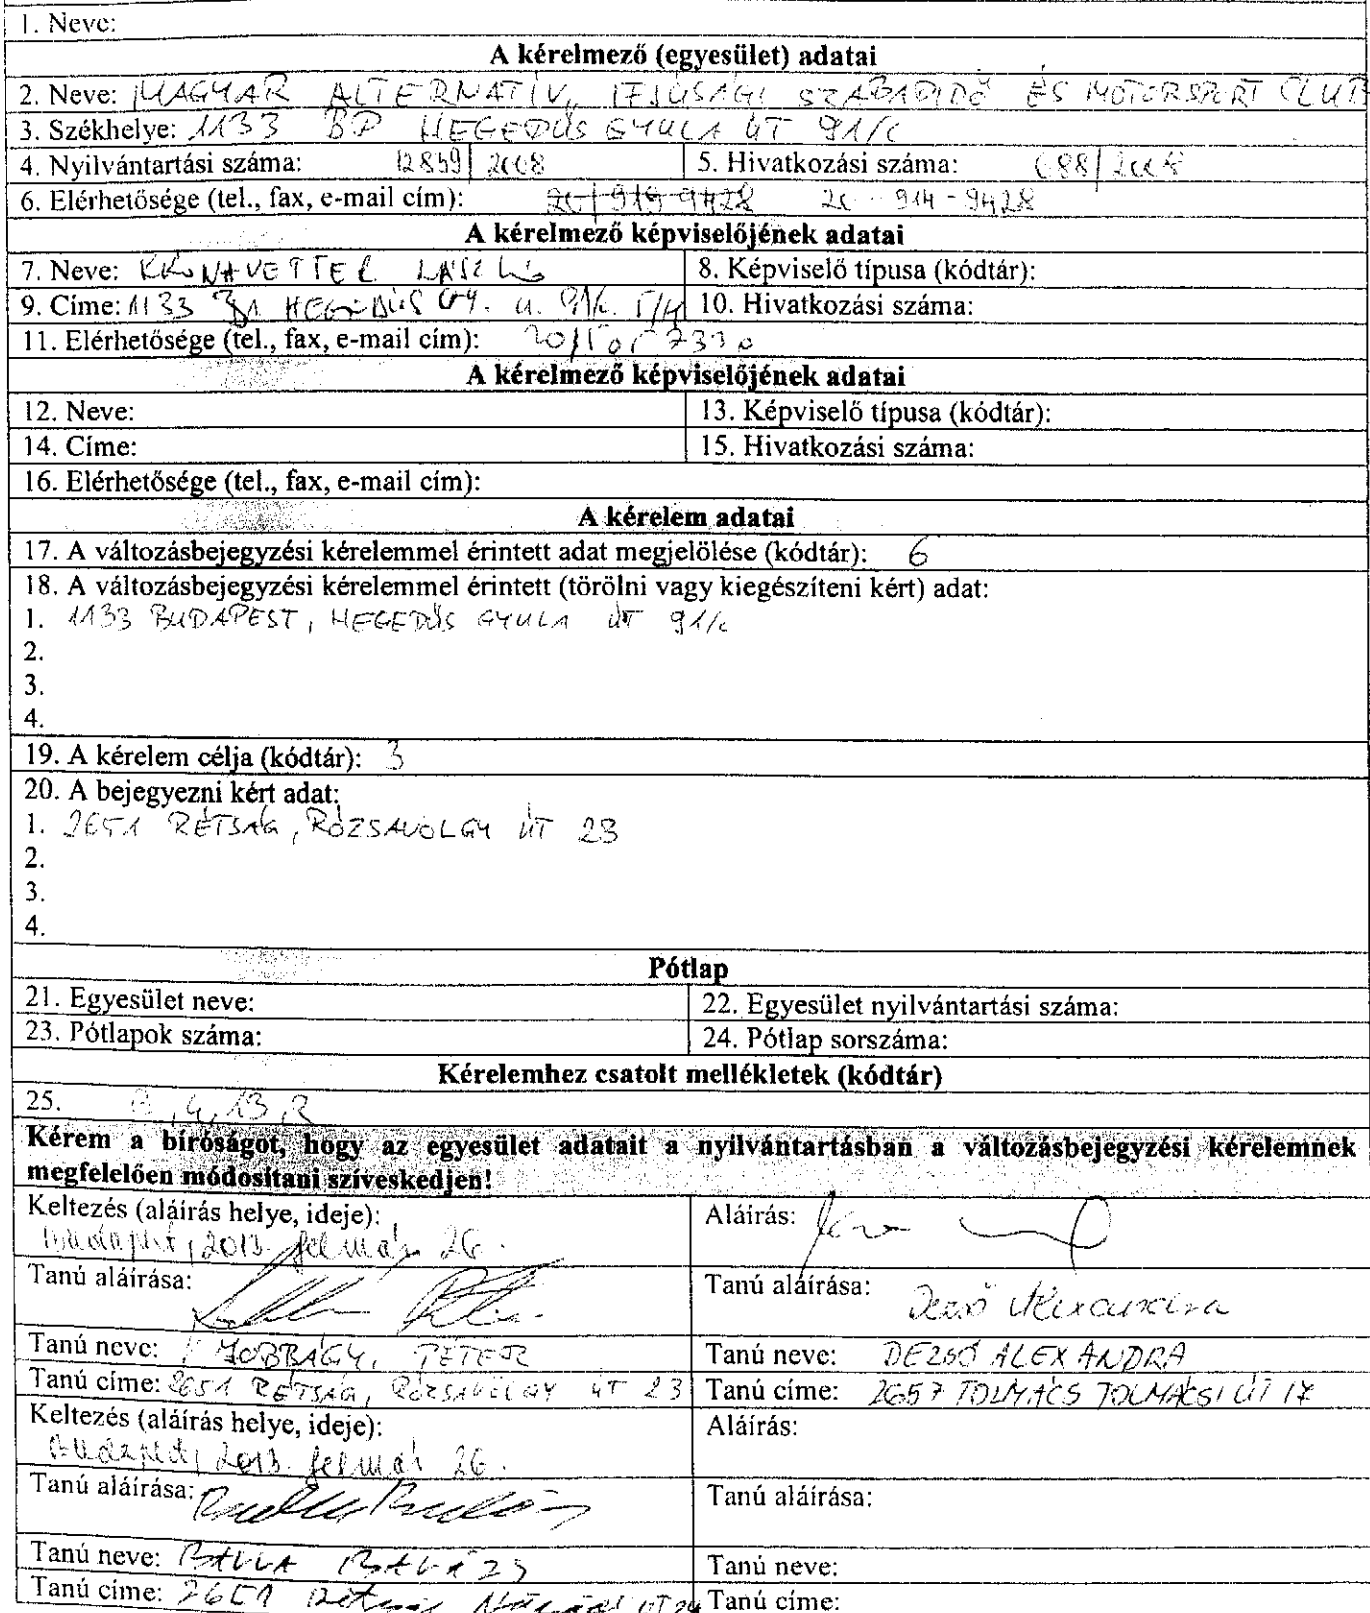 1. Neve:
A kérelmező (egyesület) adatai
2. Neve: MAGYAR ALTERNATÍV, IFJÚSÁGI SZABADIDŐ ÉS MOTORSPORT CLUB
3. Székhelye: 1133 BP HEGEDŰS GYULA ÚT 91/C
4. Nyilvántartási száma: 12859/2008 5. Hivatkozási száma: 688/2008
6. Elérhetősége (tel., fax, e-mail cím): 20 914-9428
A kérelmező képviselőjének adatai
7. Neve: LÁSZLÓ 8. Képviselő típusa (kódtár):
9. Címe: 1133 HEGEDŰS GY. u. 91/c. 10. Hivatkozási száma:
11. Elérhetősége (tel., fax, e-mail cím):
A kérelmező képviselőjének adatai
12. Neve: 13. Képviselő típusa (kódtár):
14. Címe: 15. Hivatkozási száma:
16. Elérhetősége (tel., fax, e-mail cím):
A kérelem adatai
17. A változásbejegyzési kérelemmel érintett adat megjelölése (kódtár): 6
18. A változásbejegyzési kérelemmel érintett (törölni vagy kiegészíteni kért) adat:
1. 1133 BUDAPEST, HEGEDŰS GYULA ÚT 91/c
2.
3.
4.
19. A kérelem célja (kódtár): 3
20. A bejegyezni kért adat:
1. 2651 RÉTSÁG, RÓZSAVÖLGY ÚT 23
2.
3.
4.
Pótlap
21. Egyesület neve: 22. Egyesület nyilvántartási száma:
23. Pótlapok száma: 24. Pótlap sorszáma:
Kérelemhez csatolt mellékletek (kódtár)
25. 4, 13, 2
Kérem a bíróságot, hogy az egyesület adatait a nyilvántartásban a változásbejegyzési kérelemnek
megfelelően módosítani szíveskedjen!
Keltezés (aláírás helye, ideje): Aláírás:
Budapest, 2013. február 26.
Tanú aláírása: Tanú aláírása: Dezső Alexandra
Tanú neve: JOBBÁGY PÉTER Tanú neve: DEZSŐ ALEXANDRA
Tanú címe: 2651 RÉTSÁG, RÓZSAVÖLGY ÚT 23 Tanú címe: 2657 TOLMÁCS TOLMÁCSI ÚT 17
Keltezés (aláírás helye, ideje): Aláírás:
Budapest, 2013. február 26.
Tanú aláírása: Tanú aláírása:
Tanú neve: BALLA BALÁZS Tanú neve:
Tanú címe: 2651 Rétság Tanú címe: